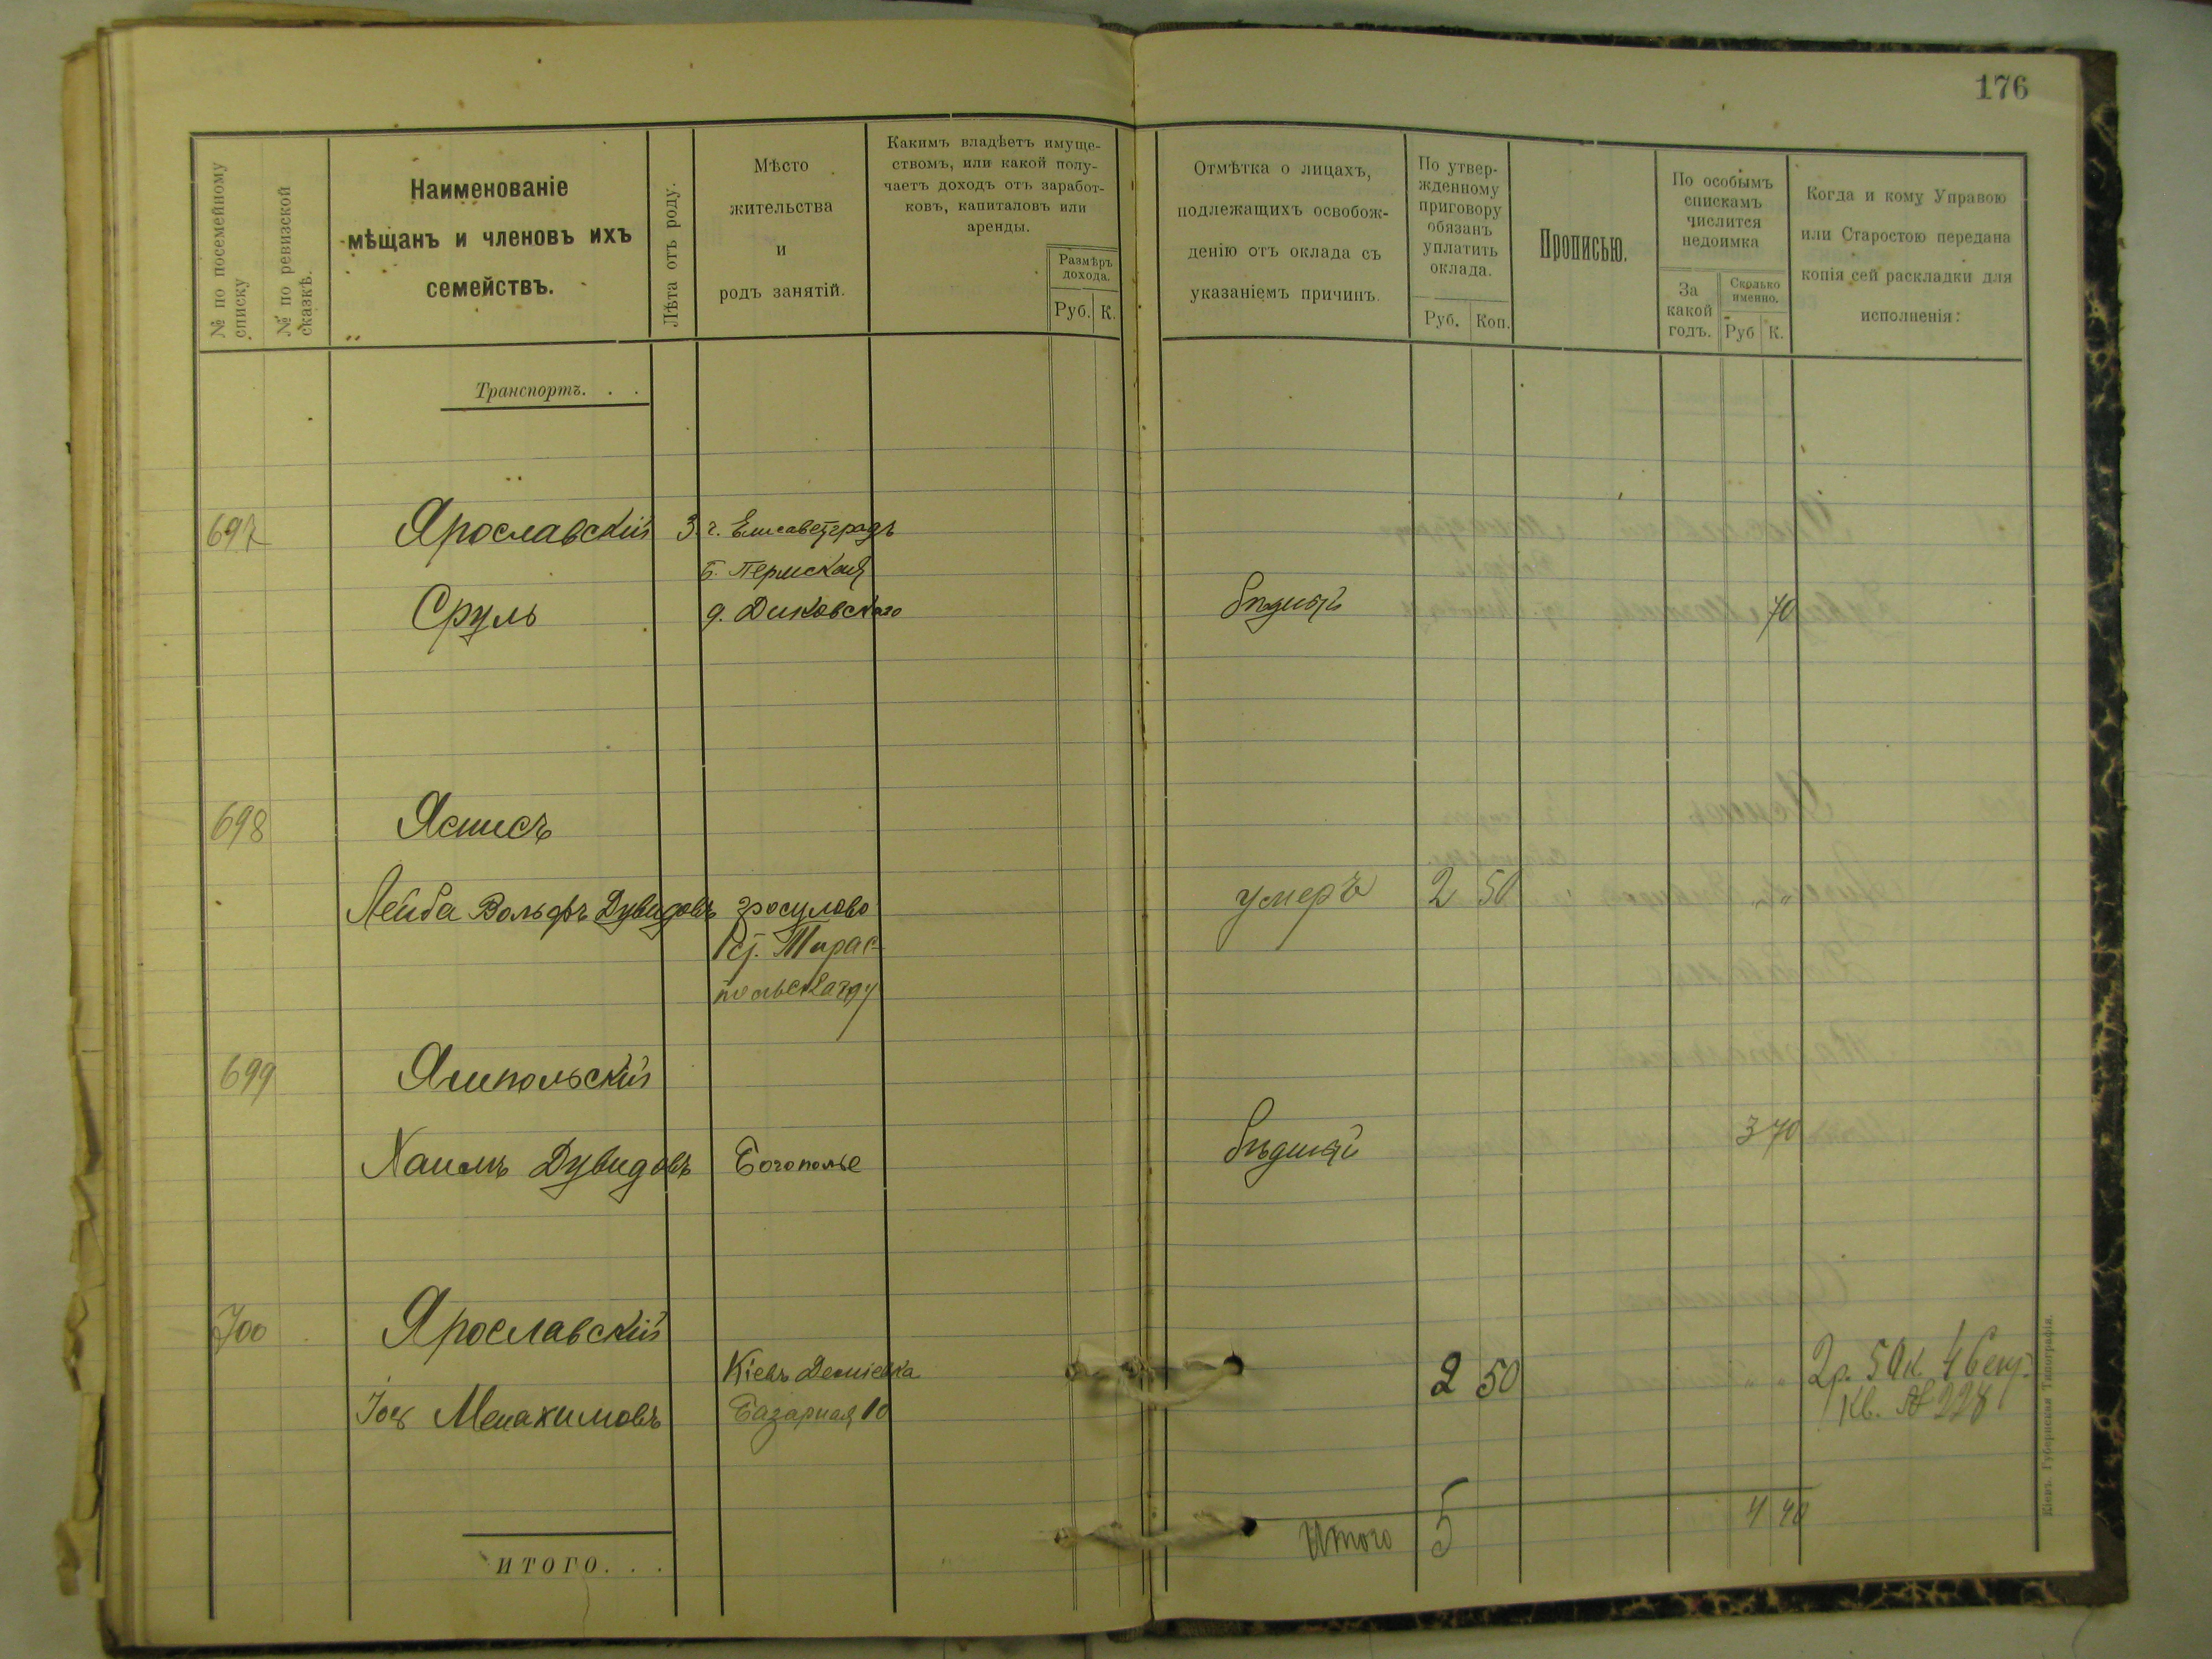 176
№ по посемейному списку
№ по ревизской сказкѣ.
Наименованіе
мѣщанъ и членовъ ихъ
семействъ.
Лѣта отъ роду.
Мѣсто
жительства
и
родъ занятій.
Какимъ владѣетъ имуще-
ствомъ, или какой полу-
чаетъ доходъ отъ заработ-
ковъ, капиталовъ или
аренды.
Размѣръ
дохода.
Руб. К.
Отмѣтка о лицахъ,
подлежащихъ освобож-
денію отъ оклада съ
указаніемъ причинъ.
По утвер-
жденному
приговору
обязанъ
уплатить
оклада.
Руб. Коп.
Прописью.
По особымъ
спискамъ
числится
недоимка
За
какой
годъ.
Сколько
именно.
Руб К.
Когда и кому Управою
или Старостою передана
копія сей раскладки для
исполненія:
Транспортъ. . .
697 Ярославскій 3 г. Елисаветградъ
Б. Пермская
Сруль д. Диковскаго бѣдный 70
698 Ясписъ
Лейба Вольфъ Дувидовъ Гросулово умеръ 2 50 " "
Тирас-
польскаго у
699 Ямпольскій
Хаимъ Дувидовъ Богополье бѣдный 3 70
700 Ярославскій
Кіевъ Деміевка 2 50 " " 2р. 50к.
Менахимовъ Базарная 10 Кв. № 228
Итого 5 4 40
ИТОГО. . .
Кіевъ. Губернская Типографія.